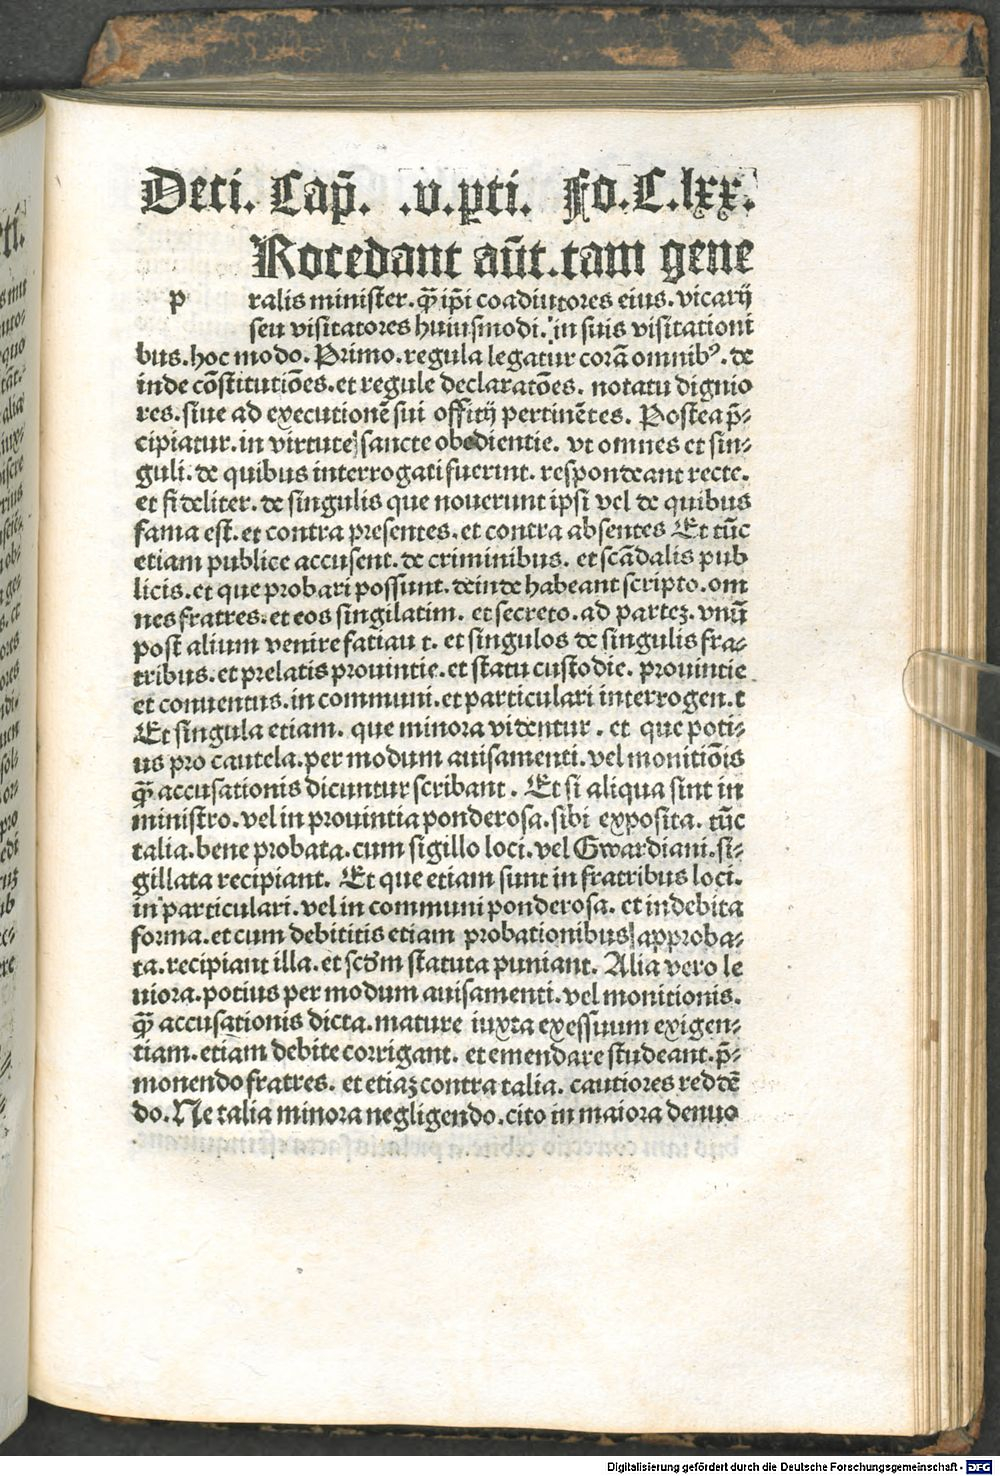 Deci. Cap̄. .v.pti. Fo.C.lxx.
Rocedant aūt.tam gene
p ralis minister.q̄ ip̄i coadiutores eius.vicarij
seu visitatores huiusmodi.in suis visitationi
bus.hoc modo.Primo.regula legatur corā omnibꝰ.de
inde cōstitutiōes.et regule declaratōes. notatu dignio
res.siue ad executionē sui offitij pertinētes. Postea p̄⸗
cipiatur.in virtute sancte obedientie. vt omnes et sin⸗
guli.de quibus interrogati fuerint. respondeant recte.
et fideliter.de singulis que nouerunt ipsi vel de quibus
fama est.et contra presentes.et contra absentes Et tūc
etiam publice accusent.de criminibus. et scādalis pub
licis.et que probari possunt.deinde habeant scripto.om
nes fratres.et eos singilatim. et secreto.ad partez.vnū
post alium venire fatiau t. et singulos de singulis fra⸗
tribus.et prelatis prouintie.et statu custodie. prouintie
et conuentus.in communi.et particulari interrogen.t
Et singula etiam. que minora videntur. et que poti⸗
us pro cautela.per modum auisamenti.vel monitiōis
q̄ accusationis dicuntur scribant. Et si aliqua sint in
ministro.vel in prouintia ponderosa.sibi exposita. tūc
talia.bene probata.cum sigillo loci.vel Gwardiani.si⸗
gillata recipiant. Et que etiam sunt in fratribus loci.
in particulari.vel in communi ponderosa. et indebita
forma.et cum debititis etiam probationibus approba⸗
ta.recipiant illa.et scd̄m statuta puniant. Alia vero le
uiora.potius per modum auisamenti.vel monitionis.
q̄ accusationis dicta.mature iuxta exessiuum exigen⸗
tiam.etiam debite corrigant. et emendare studeant.p̄⸗
monendo fratres. et etiaz contra talia. cautiores reddē
do.Ne talia minora negligendo.cito in maiora denuo
Digitalisierung gefördert durch die Deutsche Forschungsgemeinschaft - DFG